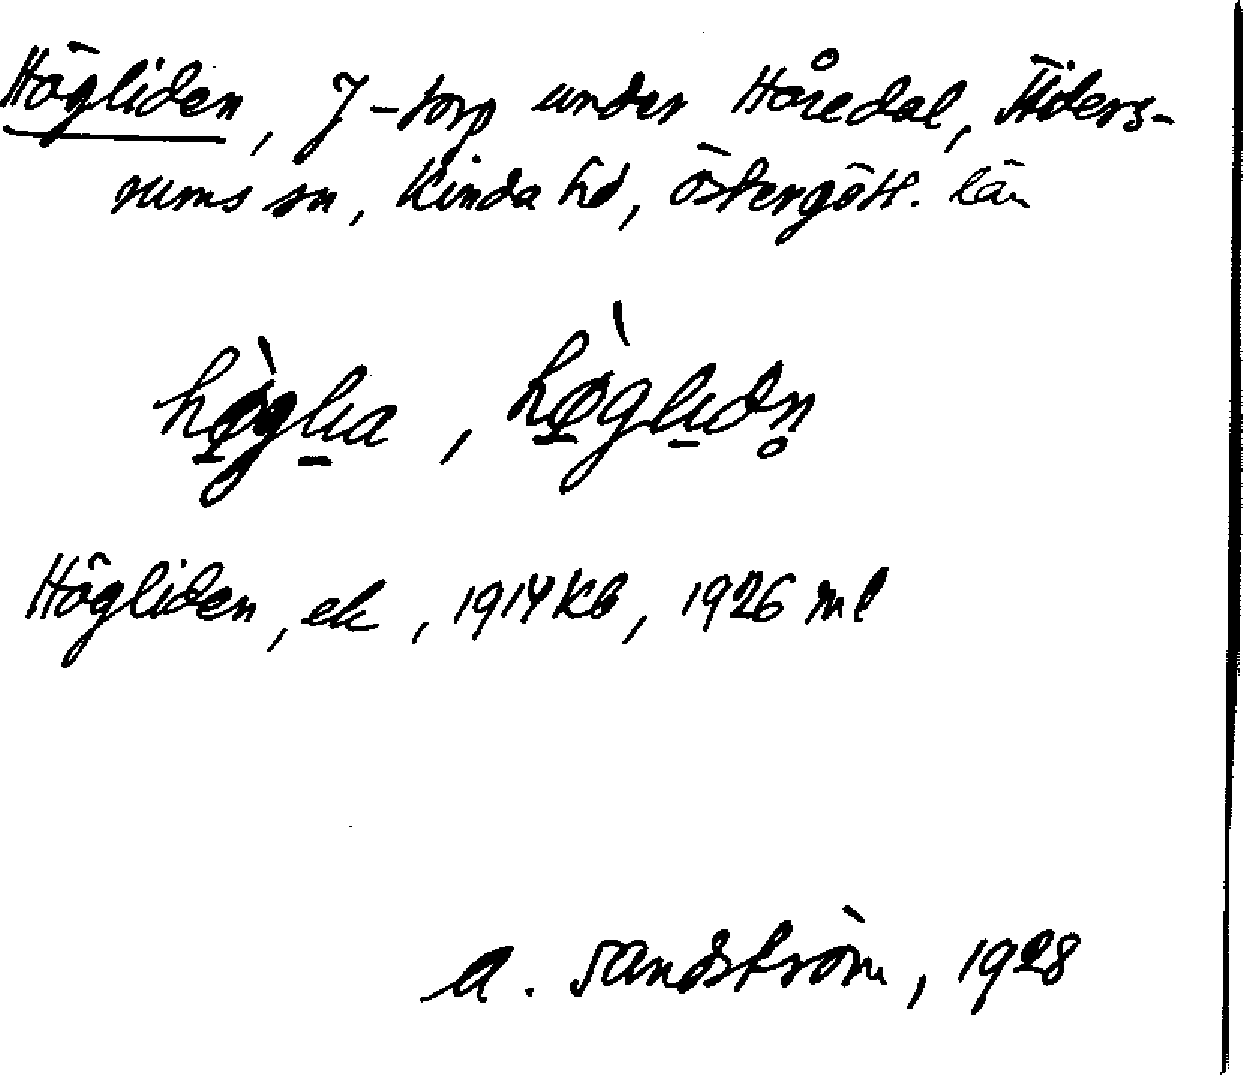 Högliden, J-torp under Håredal, Tiders-
rums sn, Kinda hd, Östergötl. län
hø̀glia, hø̀glidn̥
Högliden, ek, 1914 kb, 1926 ml
A. Sandström, 1928